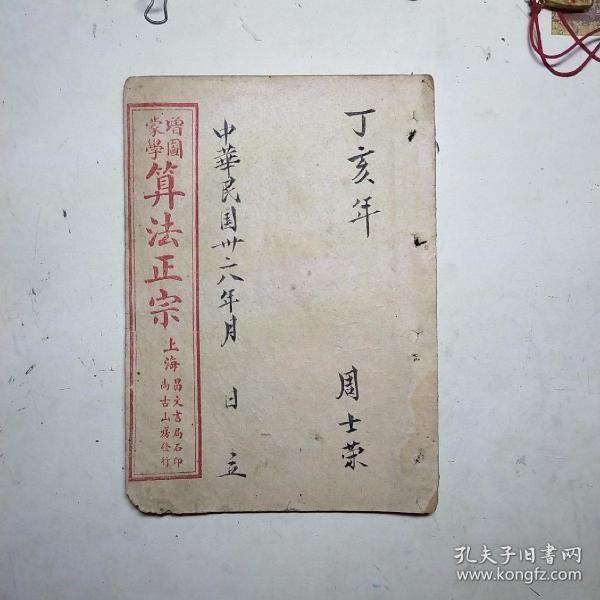 丁亥年
周士荣
中華民国卅六年月 日 立
增圖
蒙學
算法正宗
上海
昌文書局石印
尚古山房發行
孔夫子旧书网
www.kongfz.com